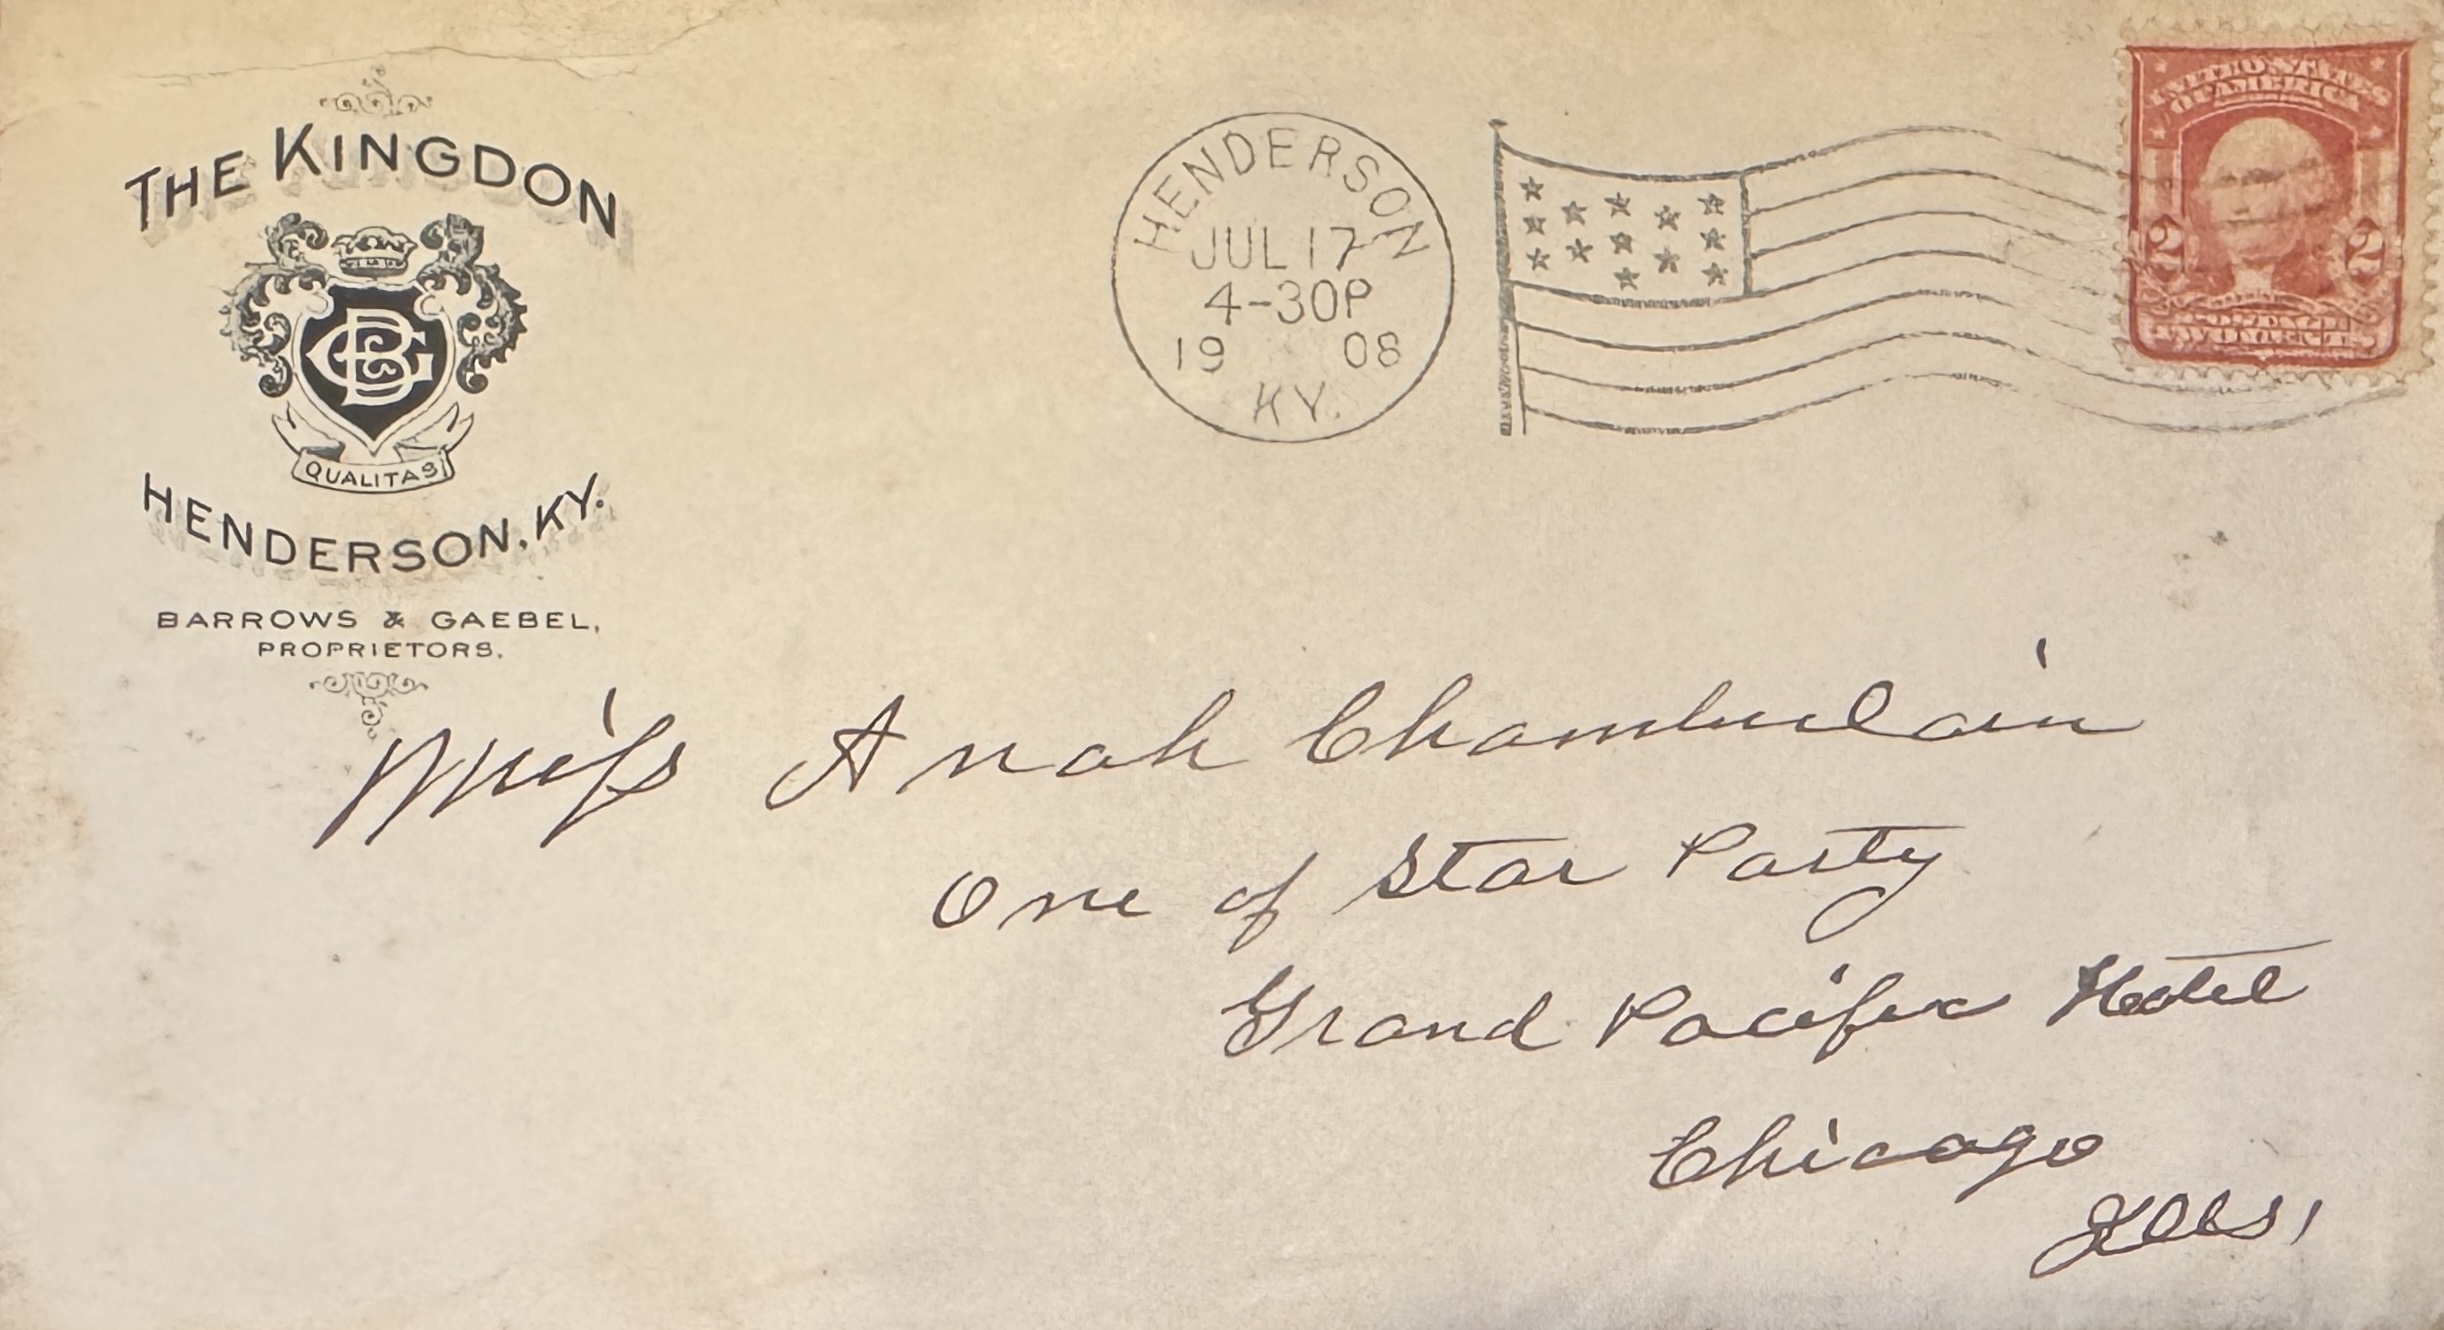 THE KINGDON
CBG
QUALITAS
HENDERSON, KY.
BARROWS & GAEBEL,
PROPRIETORS.
HENDERSON
JUL 17
4-30P
19 08
KY.
UNITED STATES
OF AMERICA
2 2
POSTAGE
TWO CENTS
Miss Anah Chamberlain
One of Star Party
Grand Pacific Hotel
Chicago
Ills.